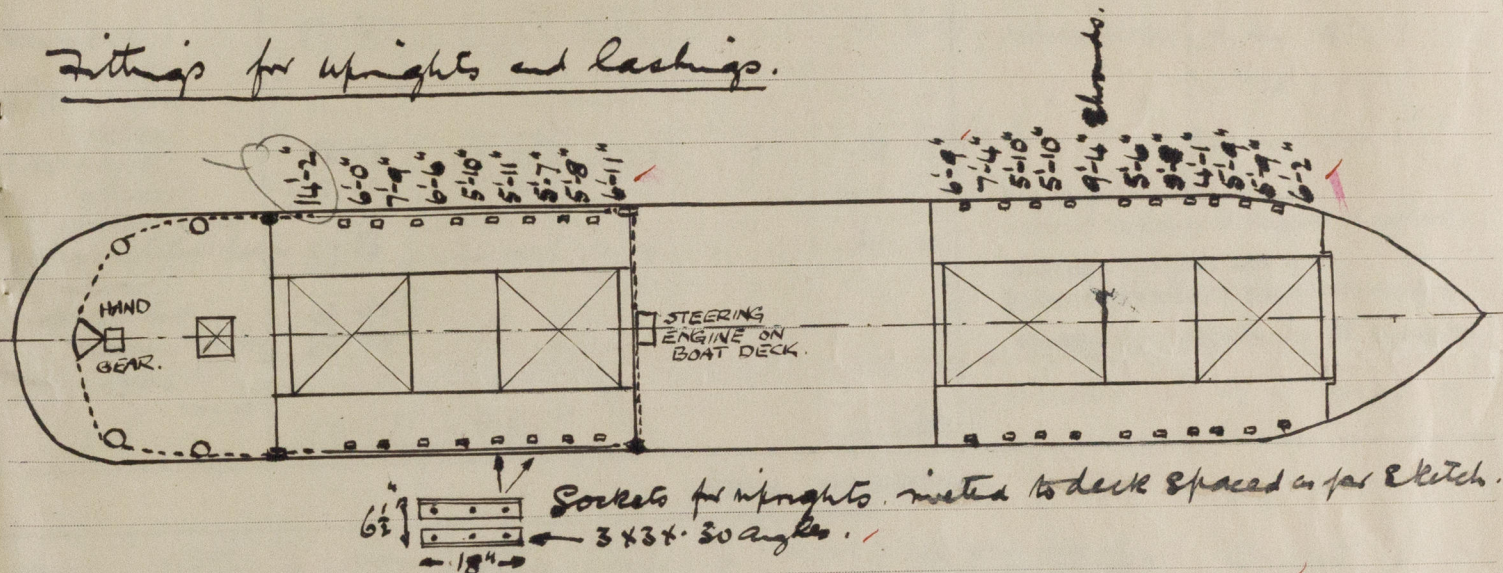 Fittings for uprights and lashings.
Shrouds.
14'-2" 6'-0" 7'-9" 6'-6" 5'-10" 5'-11" 5'-7" 5'-8" 6'-1"
6'-9" 7'-4" 5'-10" 5'-10" 9'-4" 5'-6" 3'-8" 4'-1" 5'-9" 5'-9" 6'-2"
HAND
GEAR.
STEERING
ENGINE ON
BOAT DECK.
Sockets for uprights. riveted to deck spaced as per sketch.
6½"
3 x 3 x .30 angles.
18"